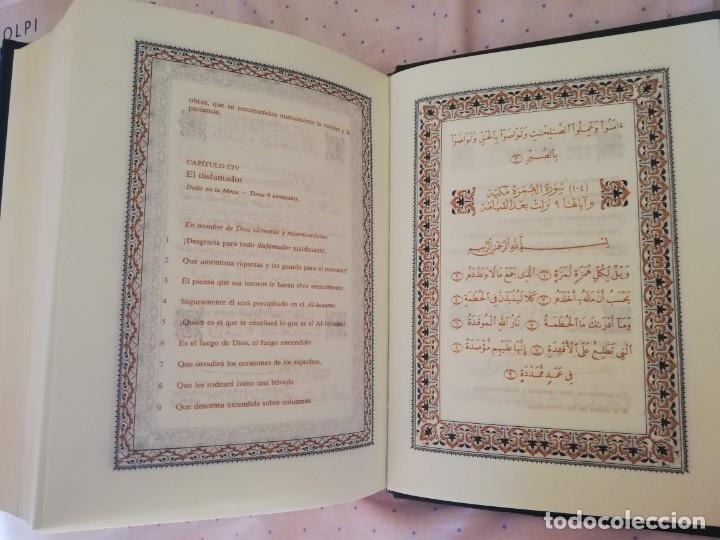 OLPI
obras, que se recomiendan mutuamente la verdad y la
paciencia.
CAPÍTULO CIV
El disfamador
Dado en la Meca. – Tiene 9 versículos.
En nombre de Dios clemente y misericordioso.
1 ¡Desgracia para todo disfamador maldiciente,
2 Que amontona riquezas y las guarda para el porvenir!
3 Él piensa que sus tesoros le harán vivir eternamente.
4 Seguramente él será precipitado en el Al-hotama.
5 ¿Quién es el que te enseñará lo que es el Al-hotama?
6 Es el fuego de Dios, el fuego encendido
7 Que invadirá los corazones de los réprobos.
8 Que les rodeará como una bóveda
9 Que descansa extendida sobre columnas.
ءَامَنُوا۟ وَعَمِلُوا۟ ٱلصَّـٰلِحَـٰتِ وَتَوَاصَوْا۟ بِٱلْحَقِّ وَتَوَاصَوْا۟
بِٱلصَّبْرِ ٣
(١٠٤) سُورَةُ الهُمَزَةِ مَكِّيَّة
وَآيَاتُهَا ٩ نَزَلَتْ بَعْدَ القِيَامَة
بِسْمِ ٱللَّهِ ٱلرَّحْمَـٰنِ ٱلرَّحِيمِ
وَيْلٌ لِّكُلِّ هُمَزَةٍ لُّمَزَةٍ ١ ٱلَّذِى جَمَعَ مَالًا وَعَدَّدَهُۥ ٢
يَحْسَبُ أَنَّ مَالَهُۥٓ أَخْلَدَهُۥ ٣ كَلَّا لَيُنۢبَذَنَّ فِى ٱلْحُطَمَةِ ٤
وَمَآ أَدْرَىٰكَ مَا ٱلْحُطَمَةُ ٥ نَارُ ٱللَّهِ ٱلْمُوقَدَةُ ٦
ٱلَّتِى تَطَّلِعُ عَلَى ٱلْأَفْـِٔدَةِ ٧ إِنَّهَا عَلَيْهِم مُّؤْصَدَةٌ ٨
فِى عَمَدٍ مُّمَدَّدَةٍۭ ٩
todocoleccion